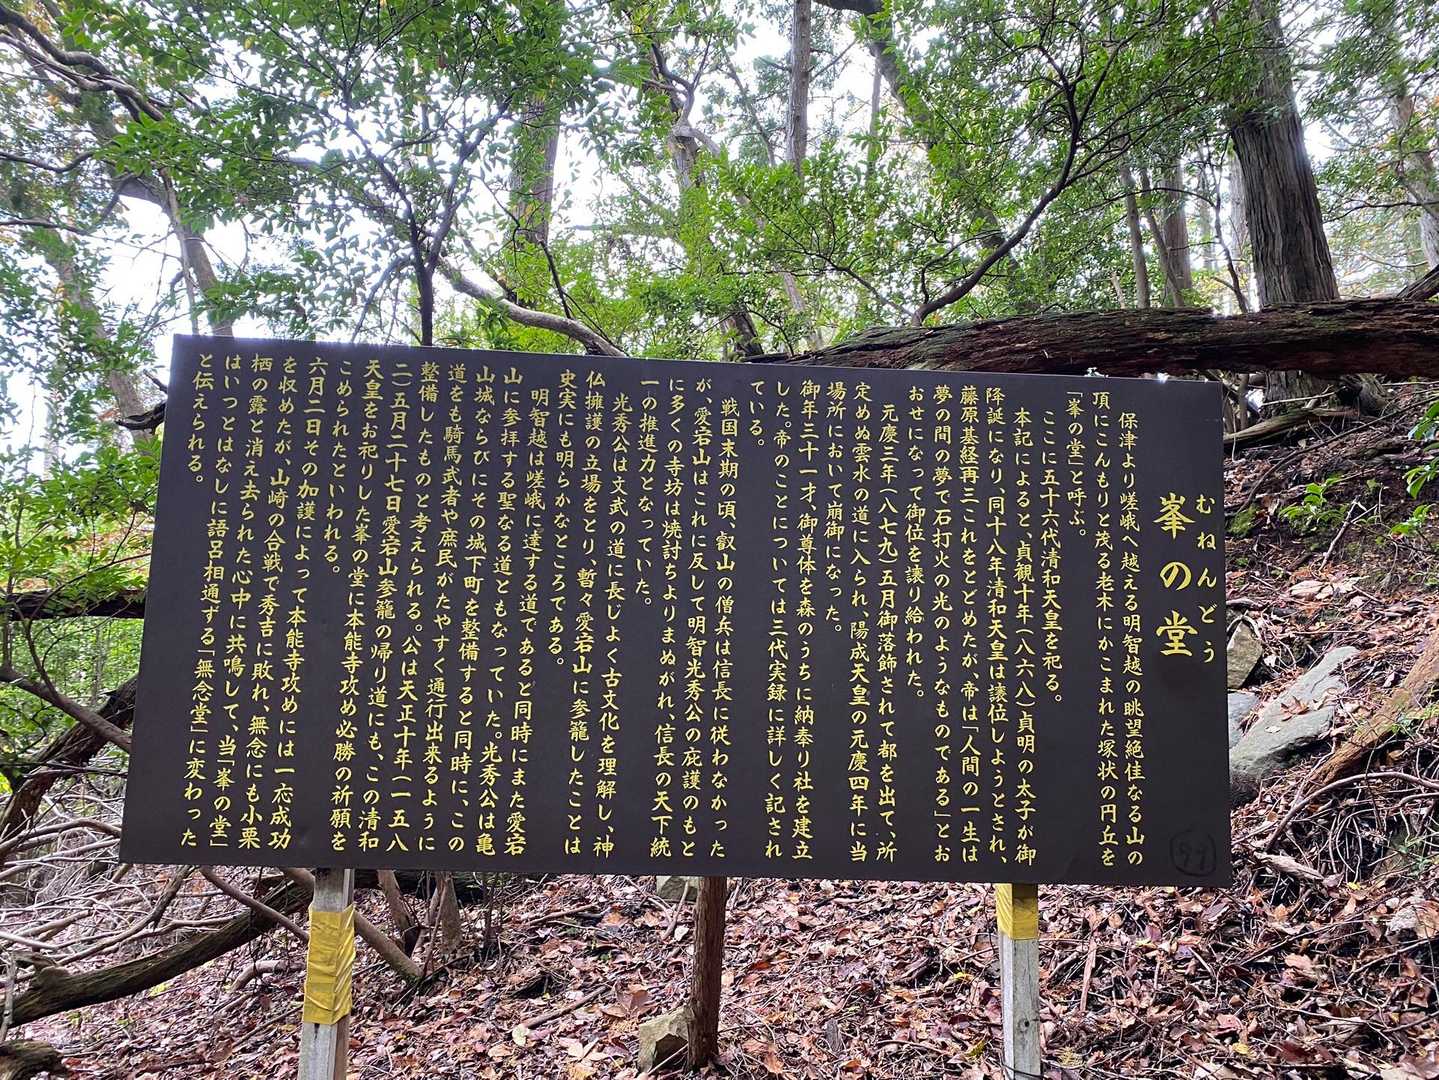 むねんどう
峯の堂
保津より嵯峨へ越える明智越の眺望絶佳なる山の
頂にこんもりと茂る老木にかこまれた塚状の円丘を
「峯の堂」と呼ぶ。
ここに五十六代清和天皇を祀る。
本記によると、貞観十年(八六八)貞明の太子が御
降誕になり、同十八年清和天皇は譲位しようとされ、
藤原基経再三これをとどめたが、帝は「人間の一生は
夢の間の夢で石打火の光のようなものである」とお
おせになって御位を譲り給われた。
元慶三年(八七九)五月御落飾されて都を出て、所
定めぬ雲水の道に入られ、陽成天皇の元慶四年に当
場所において崩御になった。
御年三十一才御尊体を森のうちに納奉り社を建立
した。帝のことについては三代実録に詳しく記され
ている。
戦国末期の頃、叡山の僧兵は信長に従わなかった
が、愛宕山はこれに反して明智光秀公の庇護のもと
に多くの寺坊は焼討ちよりまぬがれ、信長の天下統
一の推進力となっていた。
光秀公は文武の道に長じよく古文化を理解し、神
仏擁護の立場をとり、暫々愛宕山に参籠したことは
史実にも明らかなところである。
明智越は嵯峨に達する道であると同時にまた愛宕
山に参拝する聖なる道ともなっていた。光秀公は亀
山城ならびにその城下町を整備すると同時に、この
道をも騎馬武者や庶民がたやすく通行出来るように
整備したものと考えられる。公は天正十年(一五八
二)五月二十七日愛宕山参籠の帰り道にも、この清和
天皇をお祀りした峯の堂に本能寺攻め必勝の祈願を
こめられたといわれる。
六月二日その加護によって本能寺攻めには一応成功
を収めたが、山崎の合戦で秀吉に敗れ、無念にも小栗
栖の露と消え去られた心中に共鳴して、当「峯の堂」
はいつとはなしに語呂相通ずる「無念堂」に変わった
と伝えられる。